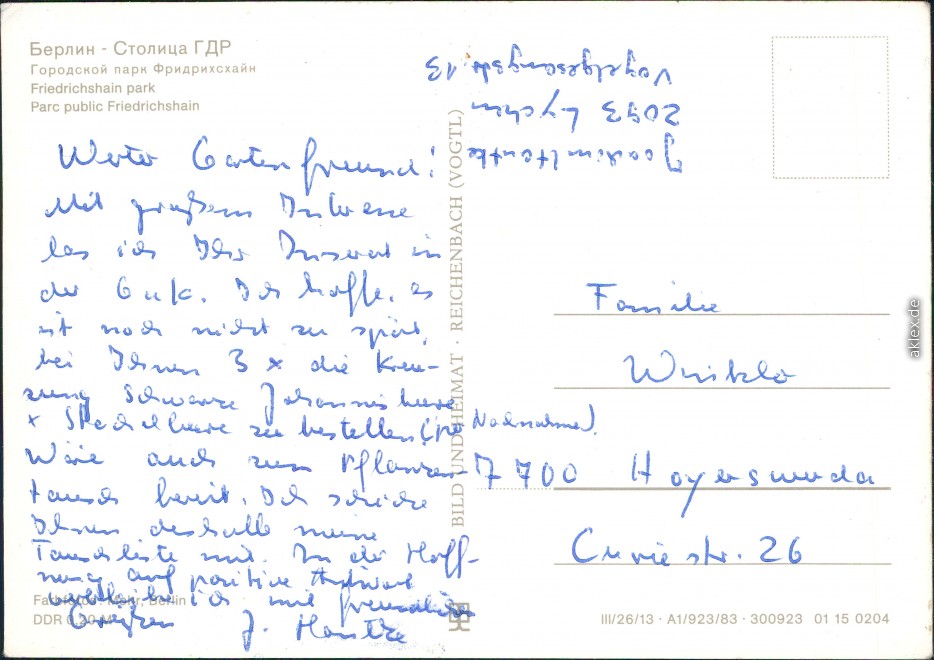 Берлин - Столица ГДР
Городской парк Фридрихсхайн
Friedrichshain park
Parc public Friedrichshain
Joachim Hentke
2093 Lychen
Vogelgesangstr. 13
Werter Gartenfreund!
Mit großem Interesse
las ich Ihr Inserat in
der GuK. Ich hoffe, es
ist noch nicht zu spät,
bei Ihnen 3 x die Kreu-
zung Schwarze Johannisbeere
x Stachelbeere zu bestellen (per Nachnahme).
Wäre auch zum Pflanzen-
tausch bereit. Ich schicke
Ihnen deshalb meine
Tauschliste mit. In der Hoff-
nung auf positive Antwort
verbleibe ich mit freundlichen
Grüßen J. Hentke
Familie
Winkler
7700 Hoyerswerda
Curiestr. 26
BILD UND HEIMAT · REICHENBACH (VOGTL)
Farbfoto: Mohr, Berlin
DDR 0,20 M
III/26/13 · A1/923/83 · 300923 01 15 0204
aklex.de